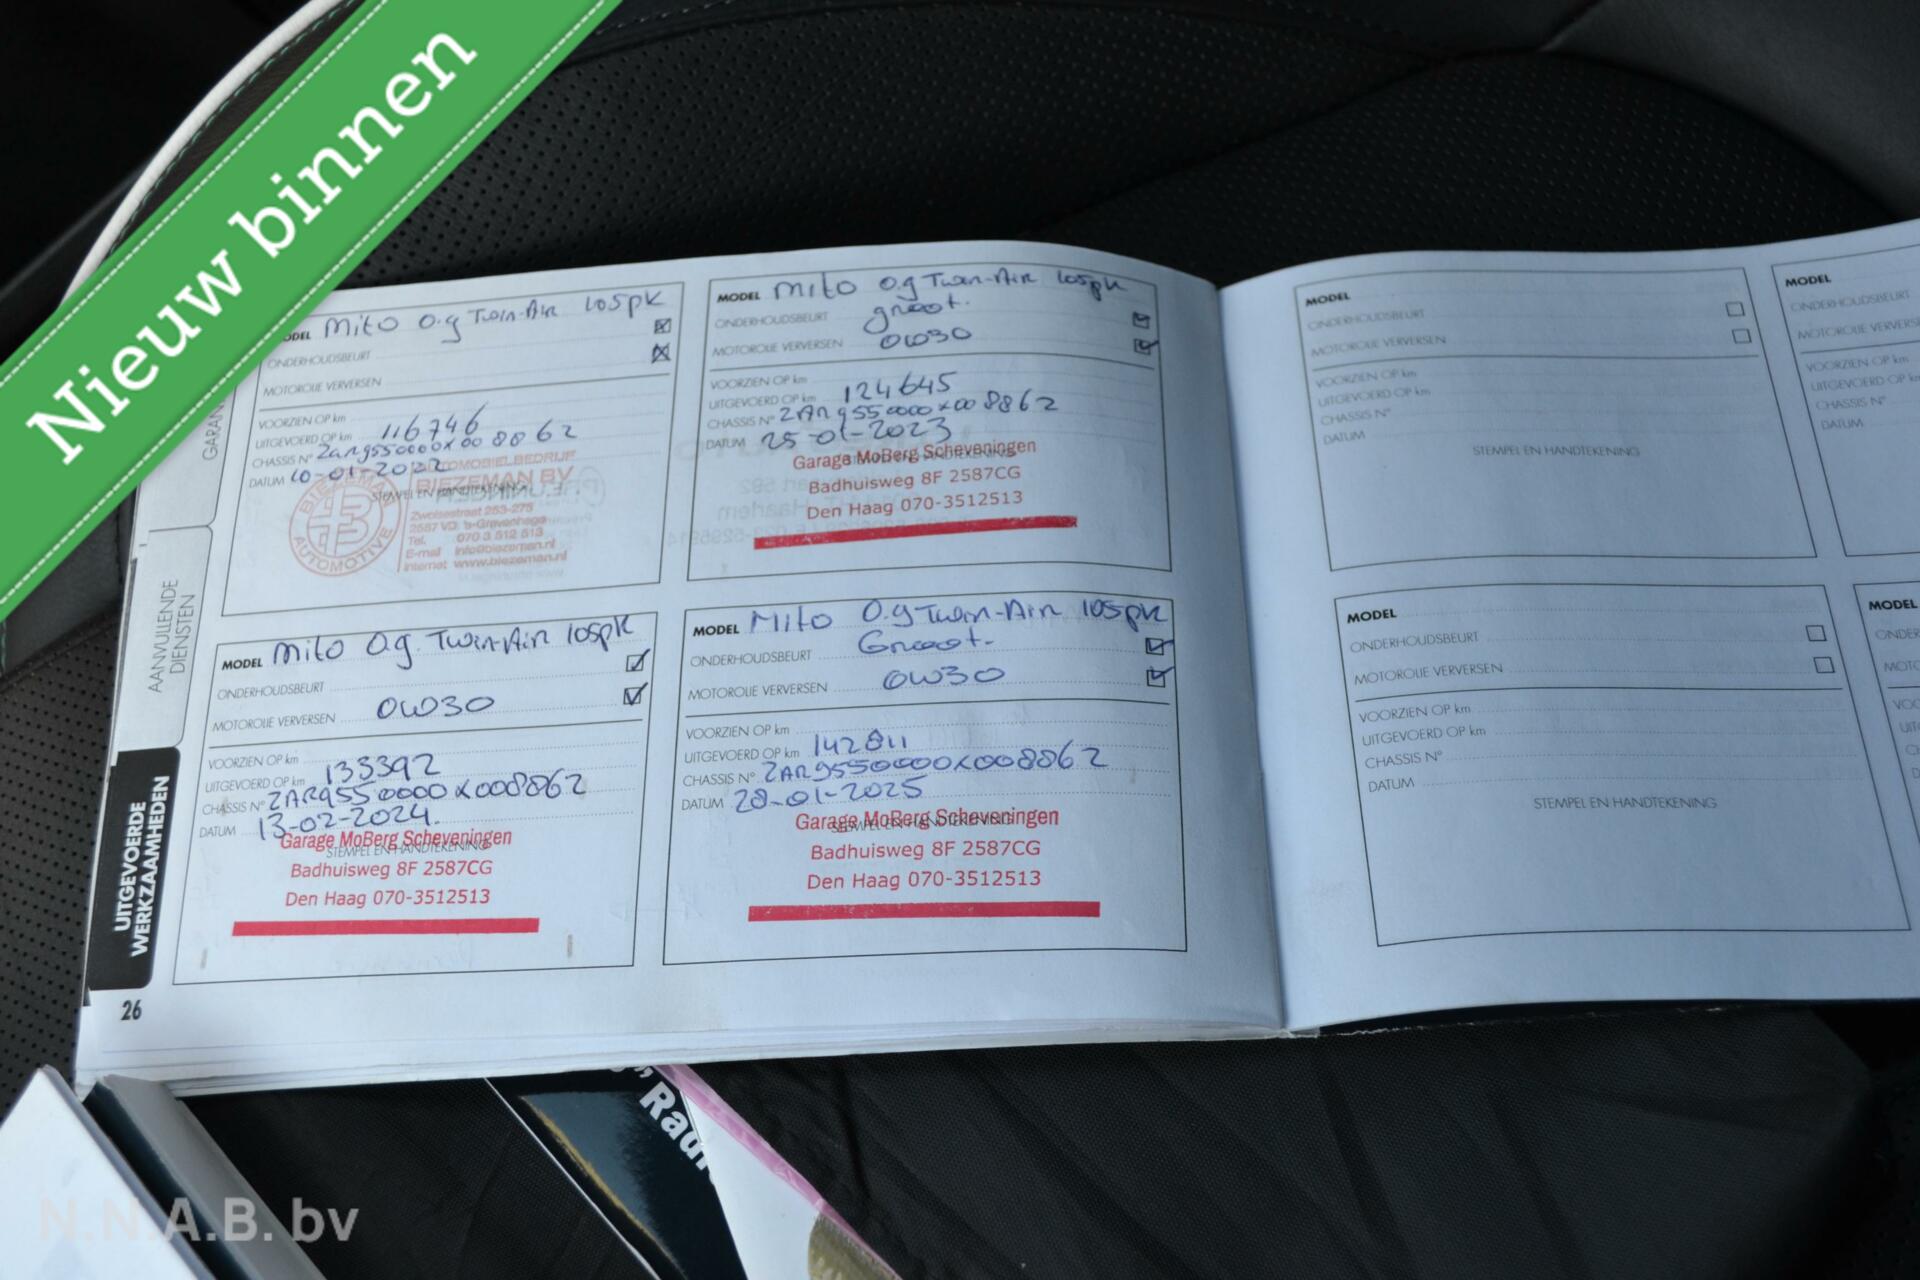 Nieuw binnen
Mito 0.9 Twin-Air 105pk
ONDERHOUDSBEURT
MOTOROLIE VERVERSEN
VOORZIEN OP km
UITGEVOERD OP km 116746
CHASSIS Nº ZAR9550000X008862
DATUM 10-01-2022
STEMPEL EN HANDTEKENING
AUTOMOBIELBEDRIJF
BIEZEMAN BV
BIEZEMAN
AUTOMOTIVE
Zwolsestraat 253-275
2587 VD 's-Gravenhage
Tel. 070 3 512 513
E-mail info@biezeman.nl
Internet www.biezeman.nl
MODEL Mito 0.9 Twin-Air 105pk
ONDERHOUDSBEURT groot.
MOTOROLIE VERVERSEN 0W30
VOORZIEN OP km
UITGEVOERD OP km 124645
CHASSIS Nº ZAR9550000X008862
DATUM 25-01-2023
Garage MoBerg Scheveningen
Badhuisweg 8F 2587CG
Den Haag 070-3512513
MODEL Mito 0.9. Twin-Air 105pk
ONDERHOUDSBEURT
MOTOROLIE VERVERSEN 0W30
VOORZIEN OP km
UITGEVOERD OP km 133392
CHASSIS Nº ZAR9550000X008862
DATUM 13-02-2024.
Garage MoBerg Scheveningen
STEMPEL EN HANDTEKENING
Badhuisweg 8F 2587CG
Den Haag 070-3512513
MODEL Mito 0.9 Twin-Air 105pk
ONDERHOUDSBEURT Groot.
MOTOROLIE VERVERSEN 0W30
VOORZIEN OP km
UITGEVOERD OP km 142811
CHASSIS Nº ZAR9550000X008862
DATUM 28-01-2025
Garage MoBerg Scheveningen
STEMPEL EN HANDTEKENING
Badhuisweg 8F 2587CG
Den Haag 070-3512513
AANVULLENDE
DIENSTEN
UITGEVOERDE
WERKZAAMHEDEN
26
MODEL
ONDERHOUDSBEURT
MOTOROLIE VERVERSEN
VOORZIEN OP km
UITGEVOERD OP km
CHASSIS Nº
DATUM
STEMPEL EN HANDTEKENING
MODEL
ONDERHOUDSBEURT
MOTOROLIE VERVERSEN
VOORZIEN OP km
UITGEVOERD OP km
CHASSIS Nº
DATUM
STEMPEL EN HANDTEKENING
MODEL
ONDERHOUDSBEURT
VOORZIEN OP km
CHASSIS Nº
DATUM
MODEL
N.N.A.B. bv